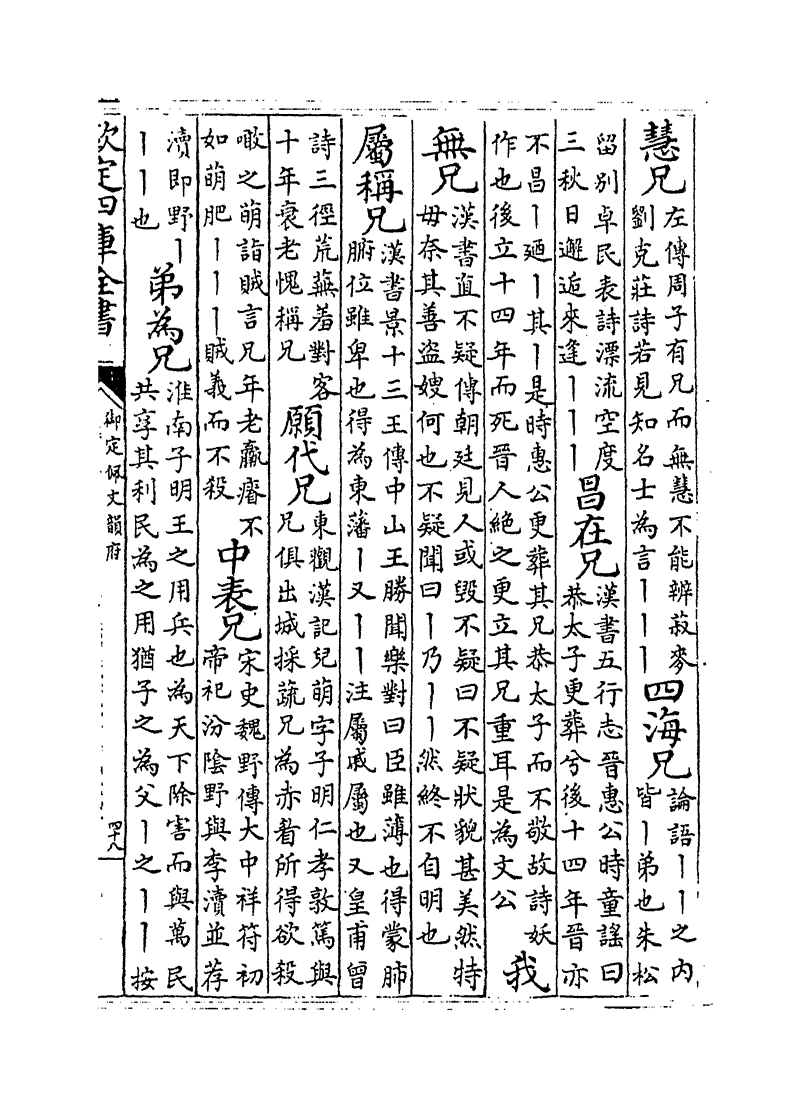 慧兄
左傳周子有兄而無慧不能辨菽麥
劉克莊詩若見知名士為言丨丨丨
四海兄
論語丨丨之内
皆丨弟也朱松
留别卓民表詩漂流空度
三秋日邂逅來逢丨丨丨
昌在兄
漢書五行志晉惠公時童謡曰
恭太子更葬兮後十四年晉亦
不昌丨廼丨其丨是時惠公更葬其兄恭太子而不敬故詩妖
作也後立十四年而死晉人絶之更立其兄重耳是為文公
我
無兄
漢書直不疑傳朝廷見人或毁不疑曰不疑狀貌甚美然特
毋奈其善盜嫂何也不疑聞曰丨乃丨丨然終不自明也
屬稱兄
漢書景十三王傳中山王勝聞樂對曰臣雖薄也得蒙肺
腑位雖卑也得為東藩丨又丨丨注屬戚屬也又皇甫曾
詩三徑荒蕪羞對客
十年衰老愧稱兄
願代兄
東觀漢記兒萌字子明仁孝敦篤與
兄俱出城採蔬兄為赤眉所得欲殺
噉之萌詣賊言兄年老羸瘠不
如萌肥丨丨丨賊義而不殺
中表兄
宋史魏野傳大中祥符初
帝祀汾隂野與李瀆並荐
瀆即野丨
丨丨也
弟為兄
淮南子明王之用兵也為天下除害而與萬民
共享其利民為之用猶子之為父丨之丨丨按
欽定四庫全書
御定佩文韻府
四十八